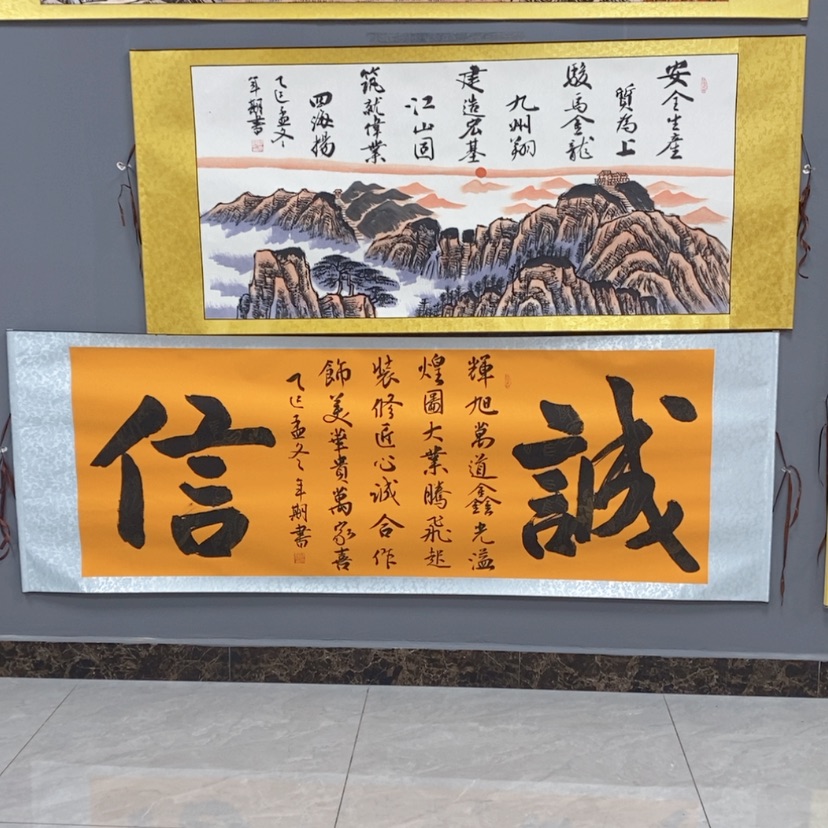 安全生産
質為上
駿馬金龍
九州翔
建造宏基
江山固
筑就偉業
四海揚
乙巳孟冬
年期書
誠
輝旭萬道金光溢
煌圖大業騰飛起
裝修匠心诚合作
飾美華貴萬家喜
乙巳孟冬年期書
信